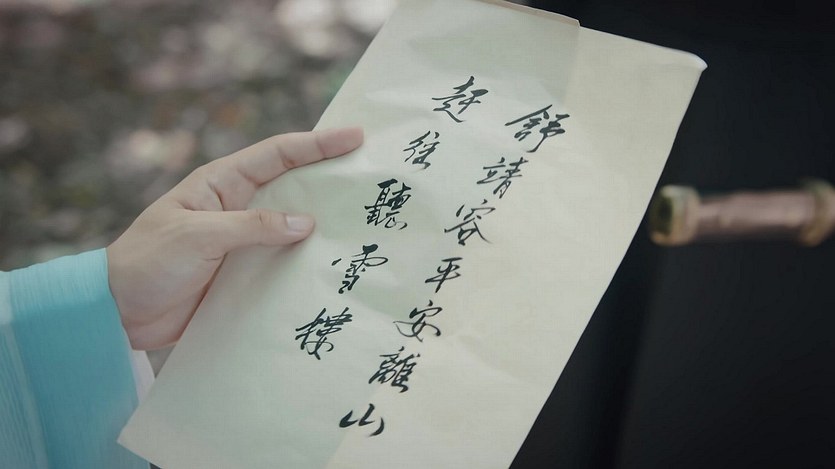 舒靖容平安離山
赶往聽雪樓